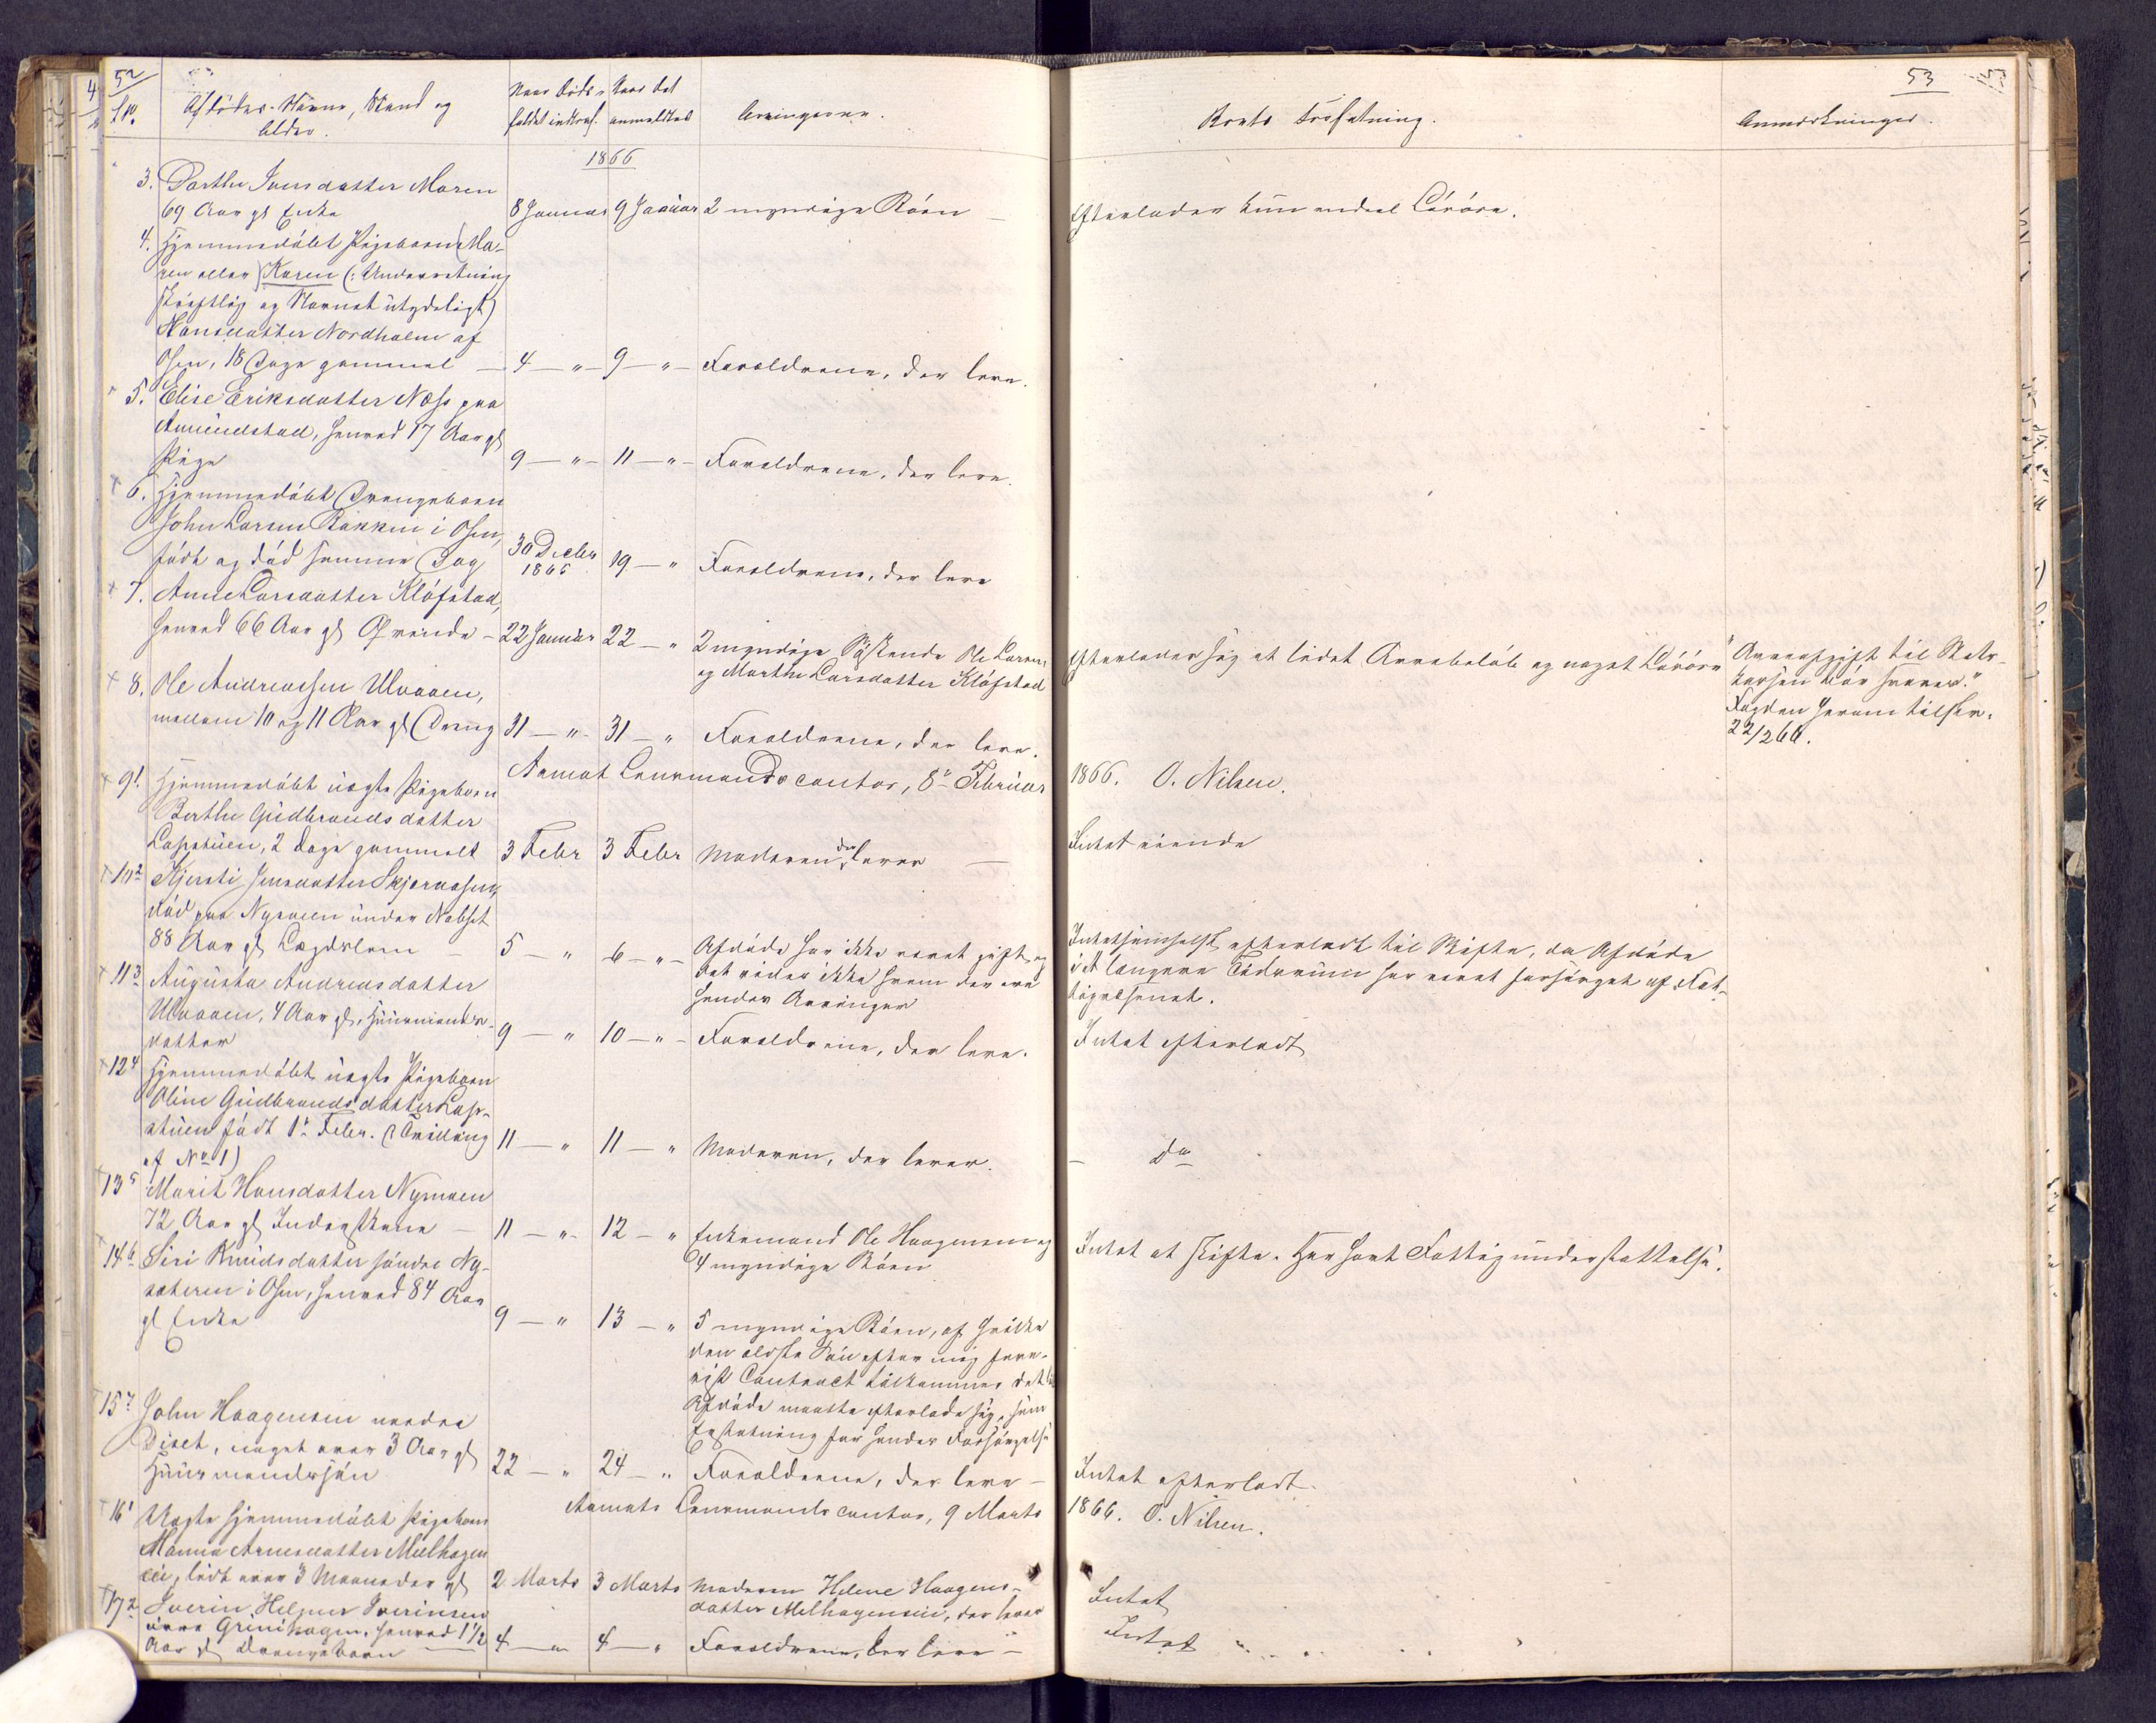 52
53
Lø.
Afdødes Navne, Stand og
Alder.
Naar Døds-
faldet indtraf.
Naar det
anmeldtes
Arvingerne.
Boets Forfatning.
Anmærkninger.
1866
3. Marthe Iversdatter Moren
69 Aar gl Enke
8 Januar 9 Januar 2 myndige Börn
Efterlader kun endeel Löröre.
4. Hjemmedöbt Pigebarn (Ma-
ren eller) Karen (: Underretning
skriftlig og Navnet utydeligt)
Hansdatter Nordholm af
Osen, 18 Dage gammel 4 — " — 9 — " — Forældrene, der leve.
5. Elise Eriksdatter Næss paa
Amundstad, henved 17 Aar gl
Pige 9 — " — 11 — " — Forældrene, der leve.
6. Hjemmedöbt Drengebarn
John Larsen Bakken i Osen,
født og död samme Dag
30 Decbr
1865
19 — " Forældrene, der leve
7. Anne Larsdatter Klöfstad,
henved 66 Aar gl Qvinde — 22 Januar 22 — " 2 myndige Söskende Ole Larsen
og Marthe Larsdatter Klöfstad
Efterlader sig et lidet Arvebelöb og noget Löröre
"Arveafgift til Stats-
kassen bör svares."
Fogden herom tilskr.
22/2 66.
8. Ole Andreassen Ulvaaen,
mellem 10 og 11 Aar gl Dreng 31 — " — 31 — " Forældrene, der leve.
Aamot Lensmandscontor, 8de Februar 1866. O. Nilsen.
9.1 Hjemmedöbt uægte Pigebarn
Berthe Gudbrandsdatter
Lapstuen, 2 Dage gammelt 3 Febr 3 Febr Moderen der lever
Intet eiende
10.2 Kjersti Jensdatter Skjæraasen,
död paa Nymoen under Nabset
88 Aar gl Lægdslem 5 — " 6 — " — Afdöde har ikke været gift og
det vides ikke hvem der ere
hendes Arvinger
Intetsomhelst efterladt til Skifte, da Afdöde
i et længere Tidsrum har været forsörget af Fat-
tigvæsenet.
11.3 Augusta Andreasdatter
Ulvaaen, 4 Aar gl, Huusmands-
datter 9 — " 10 — " — Forældrene, der leve.
Intet efterladt
12.4 Hjemmedöbt uægte Pigebarn
Oline Gudbrandsdatter Lap-
stuen født 1ste Febr. (Tvilling
af No 1) 11 — " 11 — " Moderen, der lever.
— do
13.5 Marit Hansdatter Nymoen
72 Aar gl Inderstkone — 11 — " — 12 — " Enkemand Ole Haagensen og
4 myndige Börn
Intet at skifte. Har havt Fattigunderstöttelse.
14.6 Siri Knudsdatter söndre Ny-
sæteren i Osen, henved 84 Aar
gl Enke 9 — " 13 — " 5 myndige Börn, af hvilke
den ældste Sön efter mig fore-
vist Contract tilkommer det
Afdöde maatte efterlade sig, som
Erstatning for hendes Forsörgelse
15.7 John Haagensen nordre
Diset, noget over 3 Aar gl
Huusmandssön 22 — " 24 — " Forældrene, der leve —
Intet efterladt.
Aamots Lensmandscontor, 9 Marts 1866. O. Nilsen.
16.1 Uægte hjemmedöbt Pigebarn
Manna Arnesdatter Melhagen
eie, lidt over 3 Maaneder gl 2 Marts 3 Marts Moderen Helene Haagens-
datter Melhageneie, der lever
Intet
17.2 Iverin Helmer Iverinsen
övre Grinihagen, henved 1 1/2
Aar gl Drengebarn 4 — " 4 — " Forældrene, der leve —
Intet